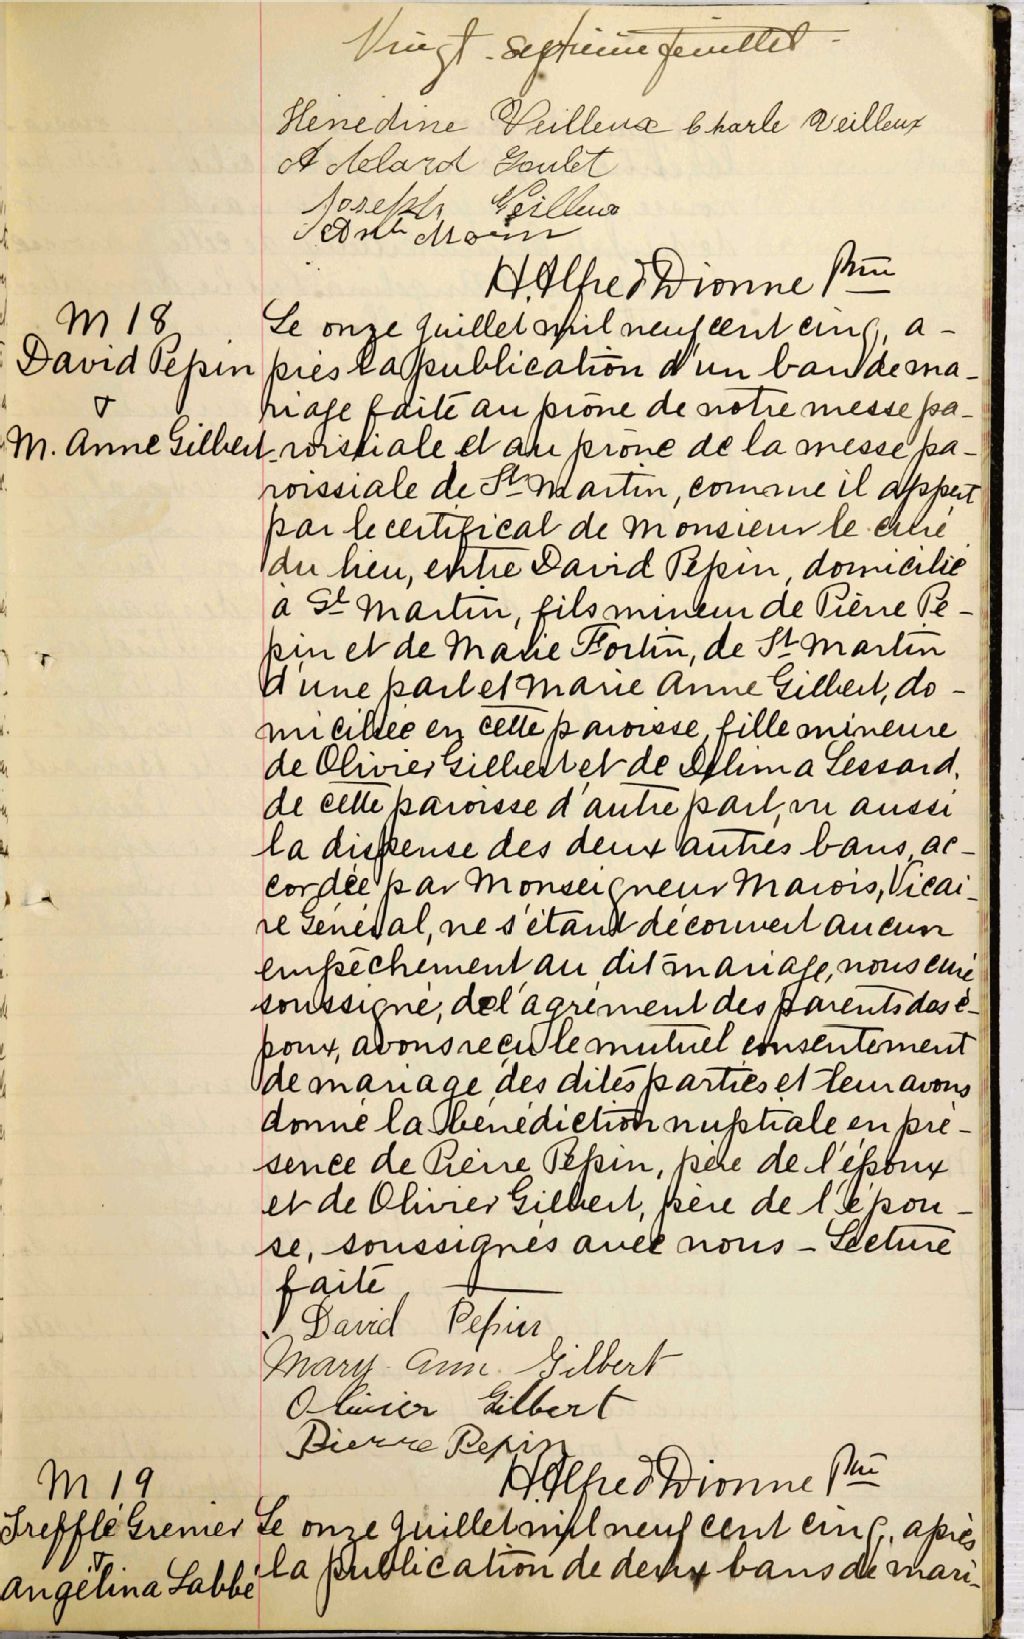 Vingt-septième feuillet -
Hénédine Veilleux Charle Veilleux
Adelard Goulet
Joseph Veilleux
H. Alfred Dionne Ptre
M 18
David Pepin
&
M. Anne Gilbert
Le onze Juillet mil neuf cent cinq, a-
près la publication d'un ban de ma-
riage faite au prône de notre messe pa-
roissiale et au prône de la messe pa-
roissiale de St Martin, comme il appert
par le certificat de Monsieur le curé
du lieu, entre David Pépin, domicilié
à St Martin, fils mineur de Pierre Pé-
pin et de Marie Fortin, de St Martin
d'une part et Marie Anne Gilbert, do-
miciliée en cette paroisse, fille mineure
de Olivier Gilbert et de Délima Lessard,
de cette paroisse d'autre part, vu aussi
la dispense des deux autres bans, ac-
cordée par Monseigneur Marois, Vicai-
re Général, ne s'étant découvert aucun
empêchement au dit mariage, nous curé
soussigné, de l'agrément des parents des é-
poux, avons reçu le mutuel consentement
de mariage des dites parties et leur avons
donné la bénédiction nuptiale en pré-
sence de Pierre Pépin, père de l'époux
et de Olivier Gilbert, père de l'épou-
se, soussignés avec nous - Lecture
faite
David Pepin
Mary Ann Gilbert
Olivier Gilbert
Pierre Pepin
H. Alfred Dionne Ptre
M 19
Trefflé Grenier
&
Angélina Labbé
Le onze Juillet mil neuf cent cinq, après
la publication de deux bans de mari-